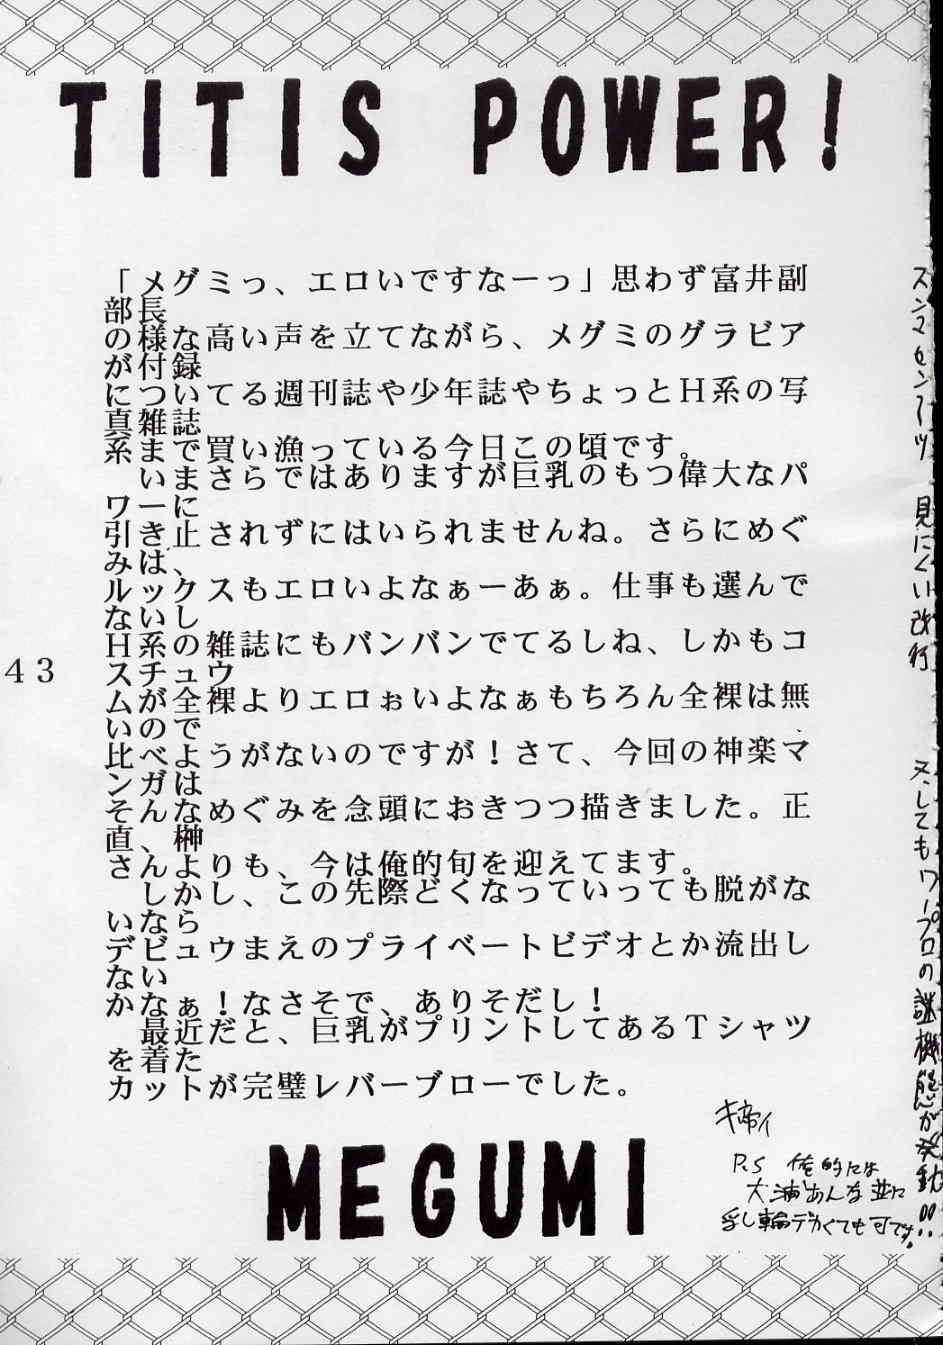 TITIS POWER!
「メグミっ、エロいですなーっ」思わず富井副
部長
の様な高い声を立てながら、メグミのグラビア
が付録
についてる週刊誌や少年誌やちょっとＨ系の写
真雑誌
系まで買い漁っている今日この頃です。
いまさらではありますが巨乳のもつ偉大なパ
ワーに
引き止されずにはいられませんね。さらにめぐ
みは、
ルックスもエロいよなぁーあぁ。仕事も選んで
ないし
Ｈ系の雑誌にもバンバンでてるしね、しかもコ
スチュウ
ムが全裸よりエロぉいよなぁもちろん全裸は無
いので
比べようがないのですが！さて、今回の神楽マ
ンガは
そんなめぐみを念頭におきつつ描きました。正
直、榊
さんよりも、今は俺的旬を迎えてます。
しかし、この先際どくなっていっても脱がな
いなら
デビュウまえのプライベートビデオとか流出し
ない
かなぁ！なさそで、ありそだし！
最近だと、巨乳がプリントしてあるＴシャツ
を着た
カットが完璧レバーブローでした。
43
P.S 俺的には
大浦あんな並に
乳し輪デカくても可です。
MEGUMI
見にくい改行
又してもワープロの謎機能が発動!!